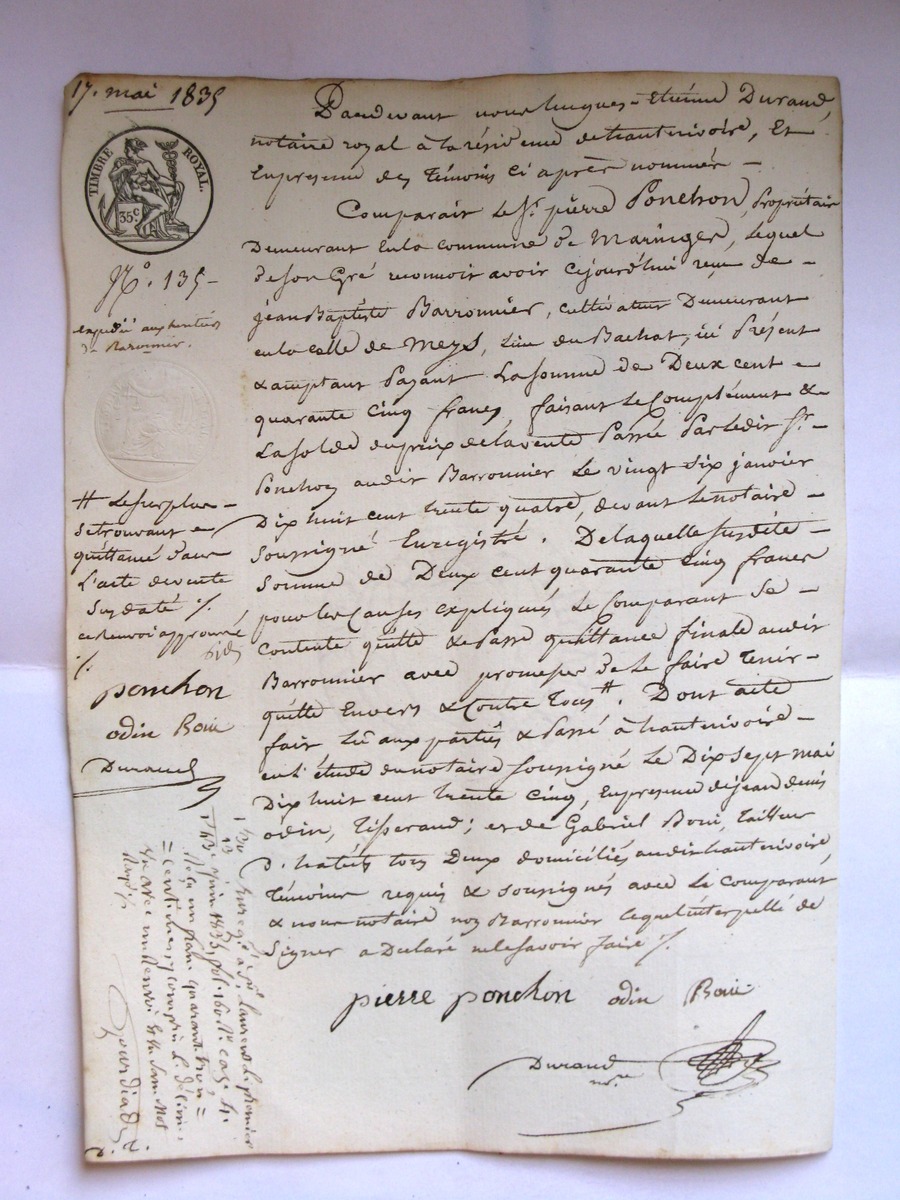 17. mai 1835
TIMBRE ROYAL.
35c
No. 135 -
expédié aux héritiers
de Baronnier.
# Le surplus -
se trouvant =
quittancé dans
L'acte de vente
Susdaté ./.
ce Renvoi approuvé
./.
ponchon
odin Boui
Durand
Pardevant nous hugues = Etienne Durand,
notaire royal à la résidence de hauterivoire, Et
En presence des Témoins Ci après nommés -
Comparait le Sr. pierre Ponchon, Propriétaire
Demeurant En la commune de Maringes, lequel
de son Gré reconnoit avoir cejourd'hui reçu de -
jean Baptiste Barronnier, cultivateur Demeurant
en la celle de Meys, lieu du Bachat, ici Présent
& comptant Payant La somme de Deux cent =
quarante Cinq francs, faisant le Complément &
La solde du prix de la vente Passée Par ledit Sr. -
Ponchon audit Barronnier le vingt Six janvier
Dix huit cent trente quatre, devant le notaire -
soussigné Enregistré. De laquelle susdite -
somme de Deux cent quarante Cinq francs
pour les Causes expliqués le Comparant se -
contente quitte & Passe quittance finale audit
Barronnier avec promesse de le faire Tenir -
quitte Envers & Contre Tous #. Dont acte
fait, lu aux parties & Passé à hauterivoire -
en l'étude du notaire soussigné le Dix Sept mai
Dix huit cent trente Cinq, En presence de jean denis
odin, Tisserand; et de Gabriel Boui, tailleur
d'habits tous Deux domiciliés audit hauterivoire,
Témoins requis & soussignés avec le Comparant
& nous notaire non Barronnier lequel interpellé de
Signer a Déclaré ne le savoir faire ./.
pierre ponchon odin Boui
Durand
nre
Enregé. à St. Laurent le premier
juin 1835, fol. 160. Ro. cas. 4.
Reçu un franc quarante trois =
= centimes, y compris le décime,
Gourdiat